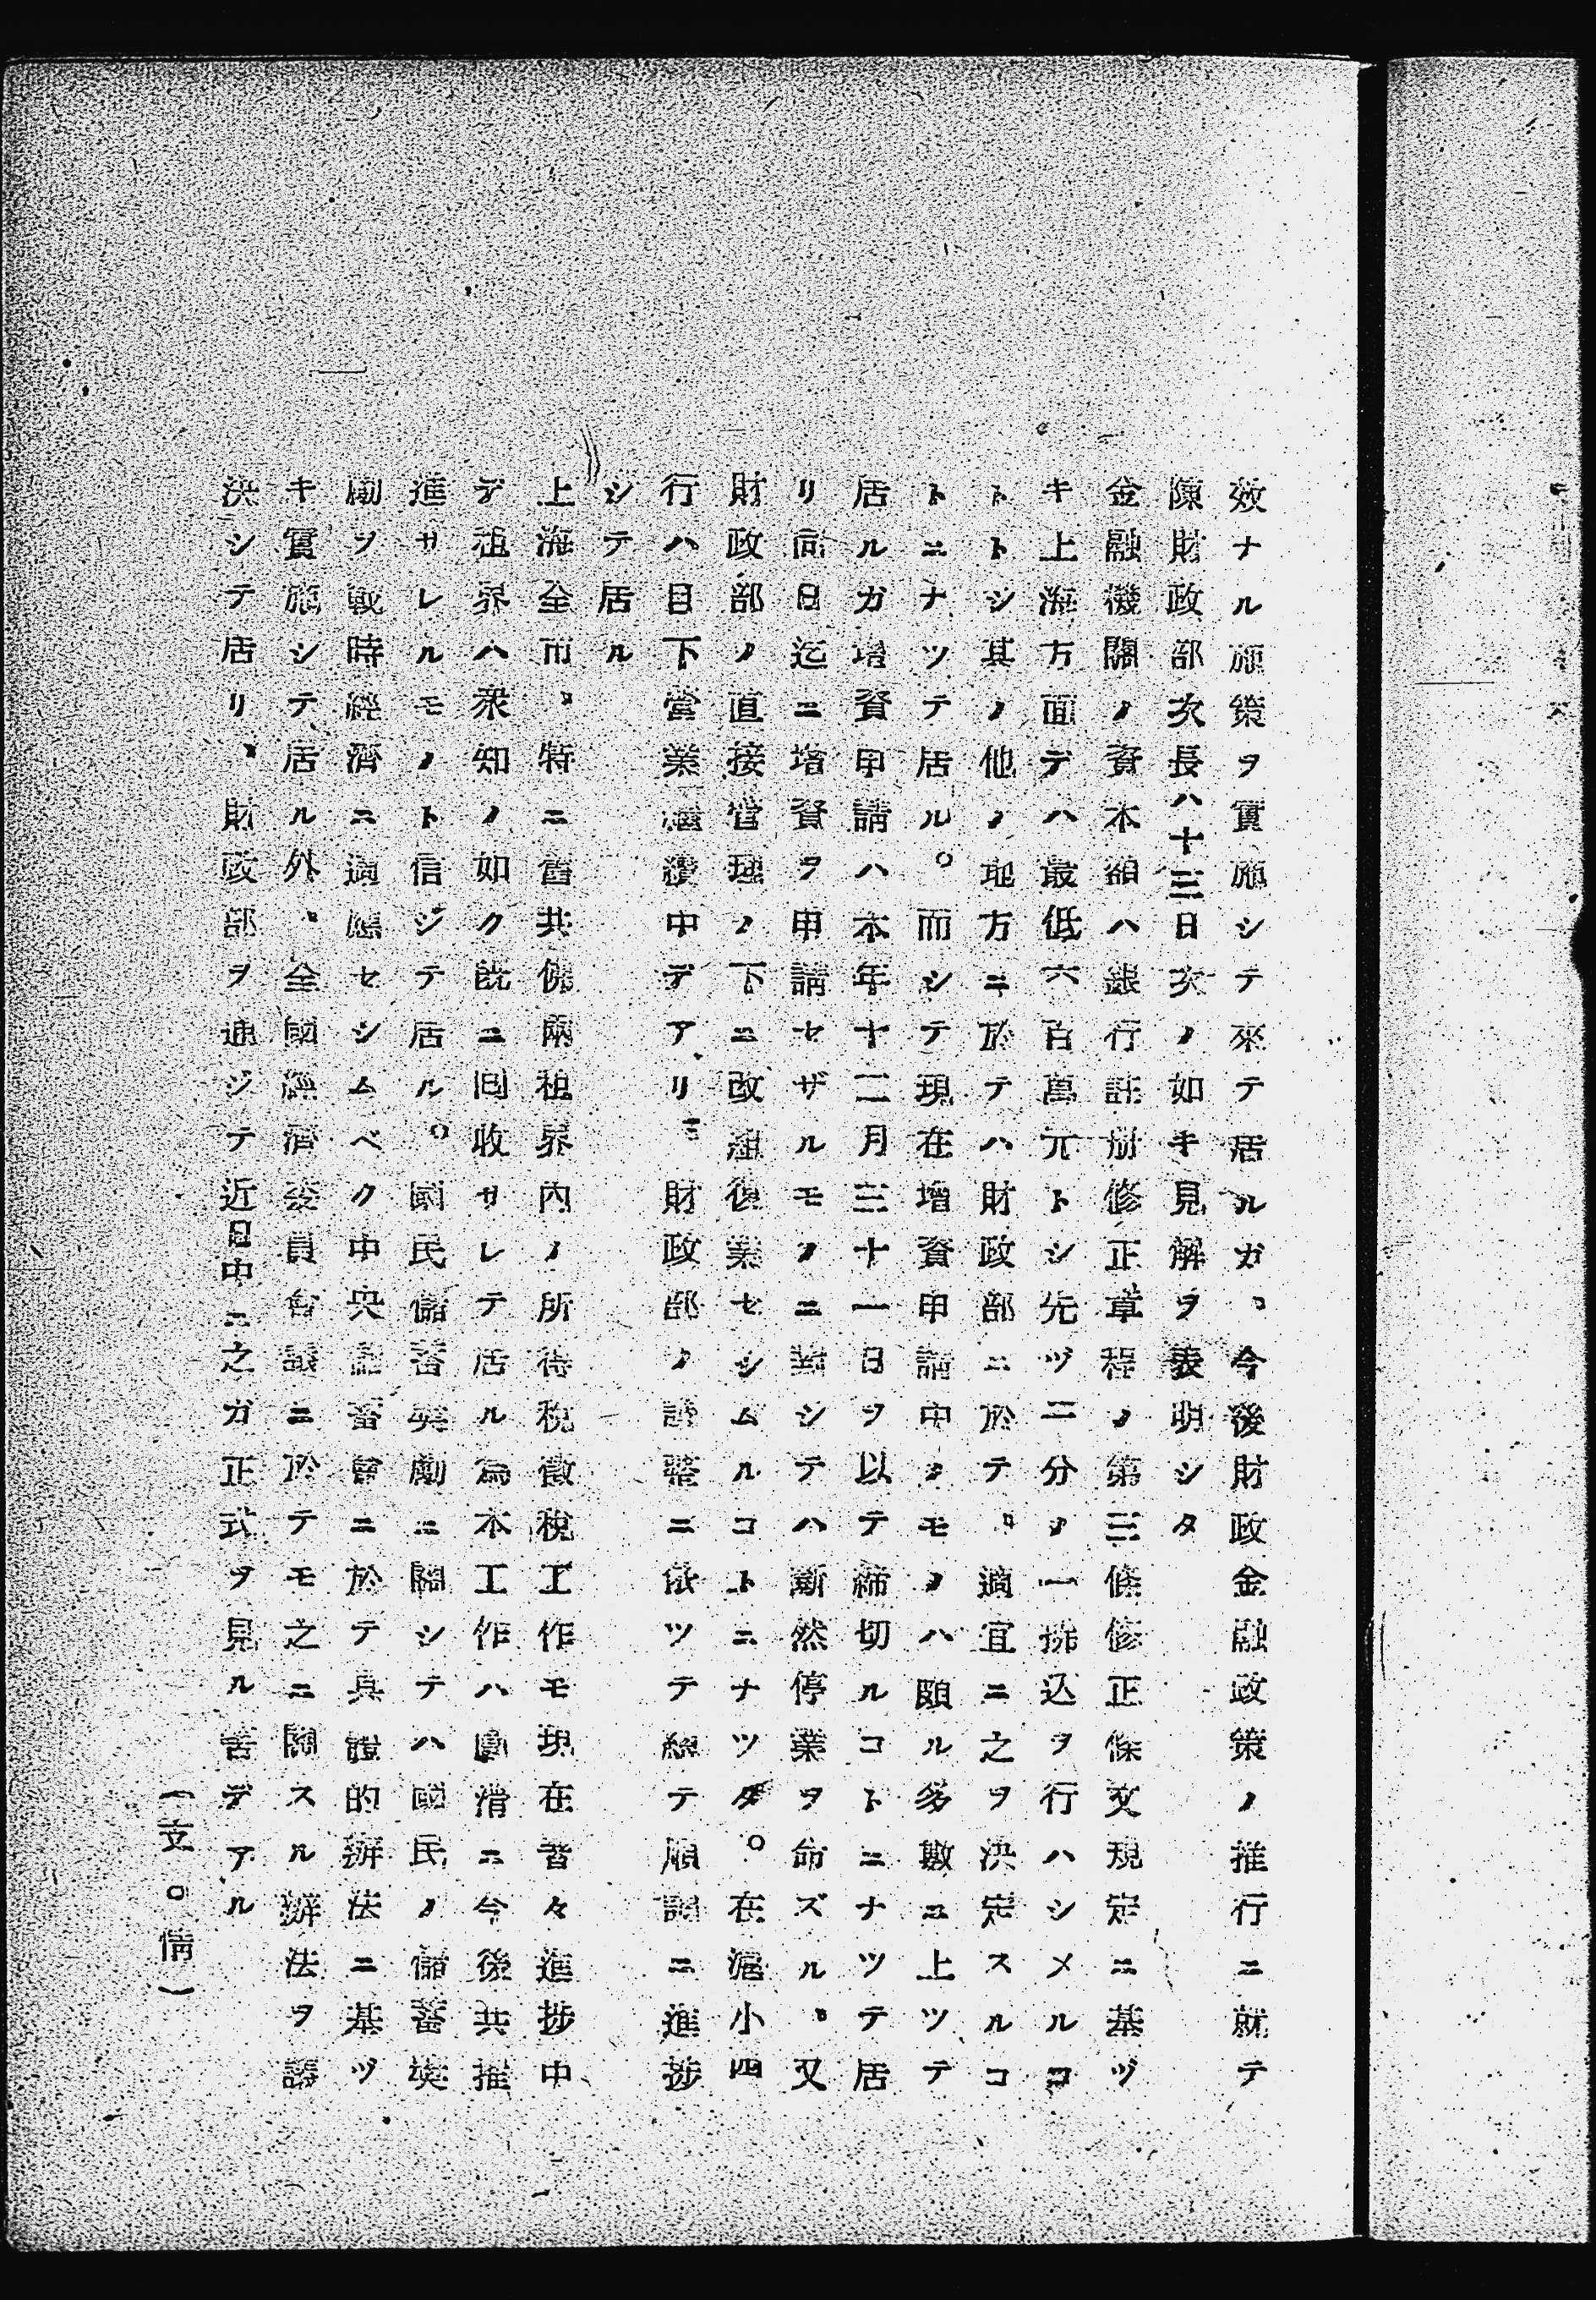 效ナル施策ヲ實施シテ來テ居ルガ、今後財政金融政策ノ推行ニ就テ
陳財政部次長ハ十三日次ノ如キ見解ヲ表明シタ
金融機關ノ資本額ハ銀行註册修正章程ノ第三條修正條文規定ニ基ヅ
キ上海方面デハ最低六百萬元トシ先ヅ二分ノ一拂込ヲ行ハシメルコ
トトシ其ノ他ノ地方ニ於テハ財政部ニ於テ、適宜ニ之ヲ決定スルコ
トニナツテ居ル。而シテ現在增資申請中ノモノハ頗ル多數ニ上ツテ
居ルガ增資申請ハ本年十二月三十一日ヲ以テ締切ルコトニナツテ居
リ同日迄ニ增資ヲ申請セザルモノニ對シテハ斷然停業ヲ命ズル、又
財政部ノ直接管理ノ下ニ改組復業セシムルコトニナツタ。在滬小四
行ハ目下營業繼續中デアリ、財政部ノ調整ニ依ツテ總テ順調ニ進捗
シテ居ル
上海全市、特ニ舊共佛兩租界內ノ所得稅徵稅工作モ現在着々進捗中
デ租界ハ衆知ノ如ク既ニ回收サレテ居ル爲本工作ハ圓滑ニ今後共推
進サレルモノト信ジテ居ル。國民儲蓄獎勵ニ關シテハ國民ノ儲蓄獎
勵ヲ戰時經濟ニ適應セシムベク中央儲蓄會ニ於テ具體的辦法ニ基ヅ
キ實施シテ居ル外、全國經濟委員會議ニ於テモ之ニ關スル辦法ヲ議
決シテ居リ、財政部ヲ通ジテ近日中ニ之ガ正式ヲ見ル筈デアル
(支。情)